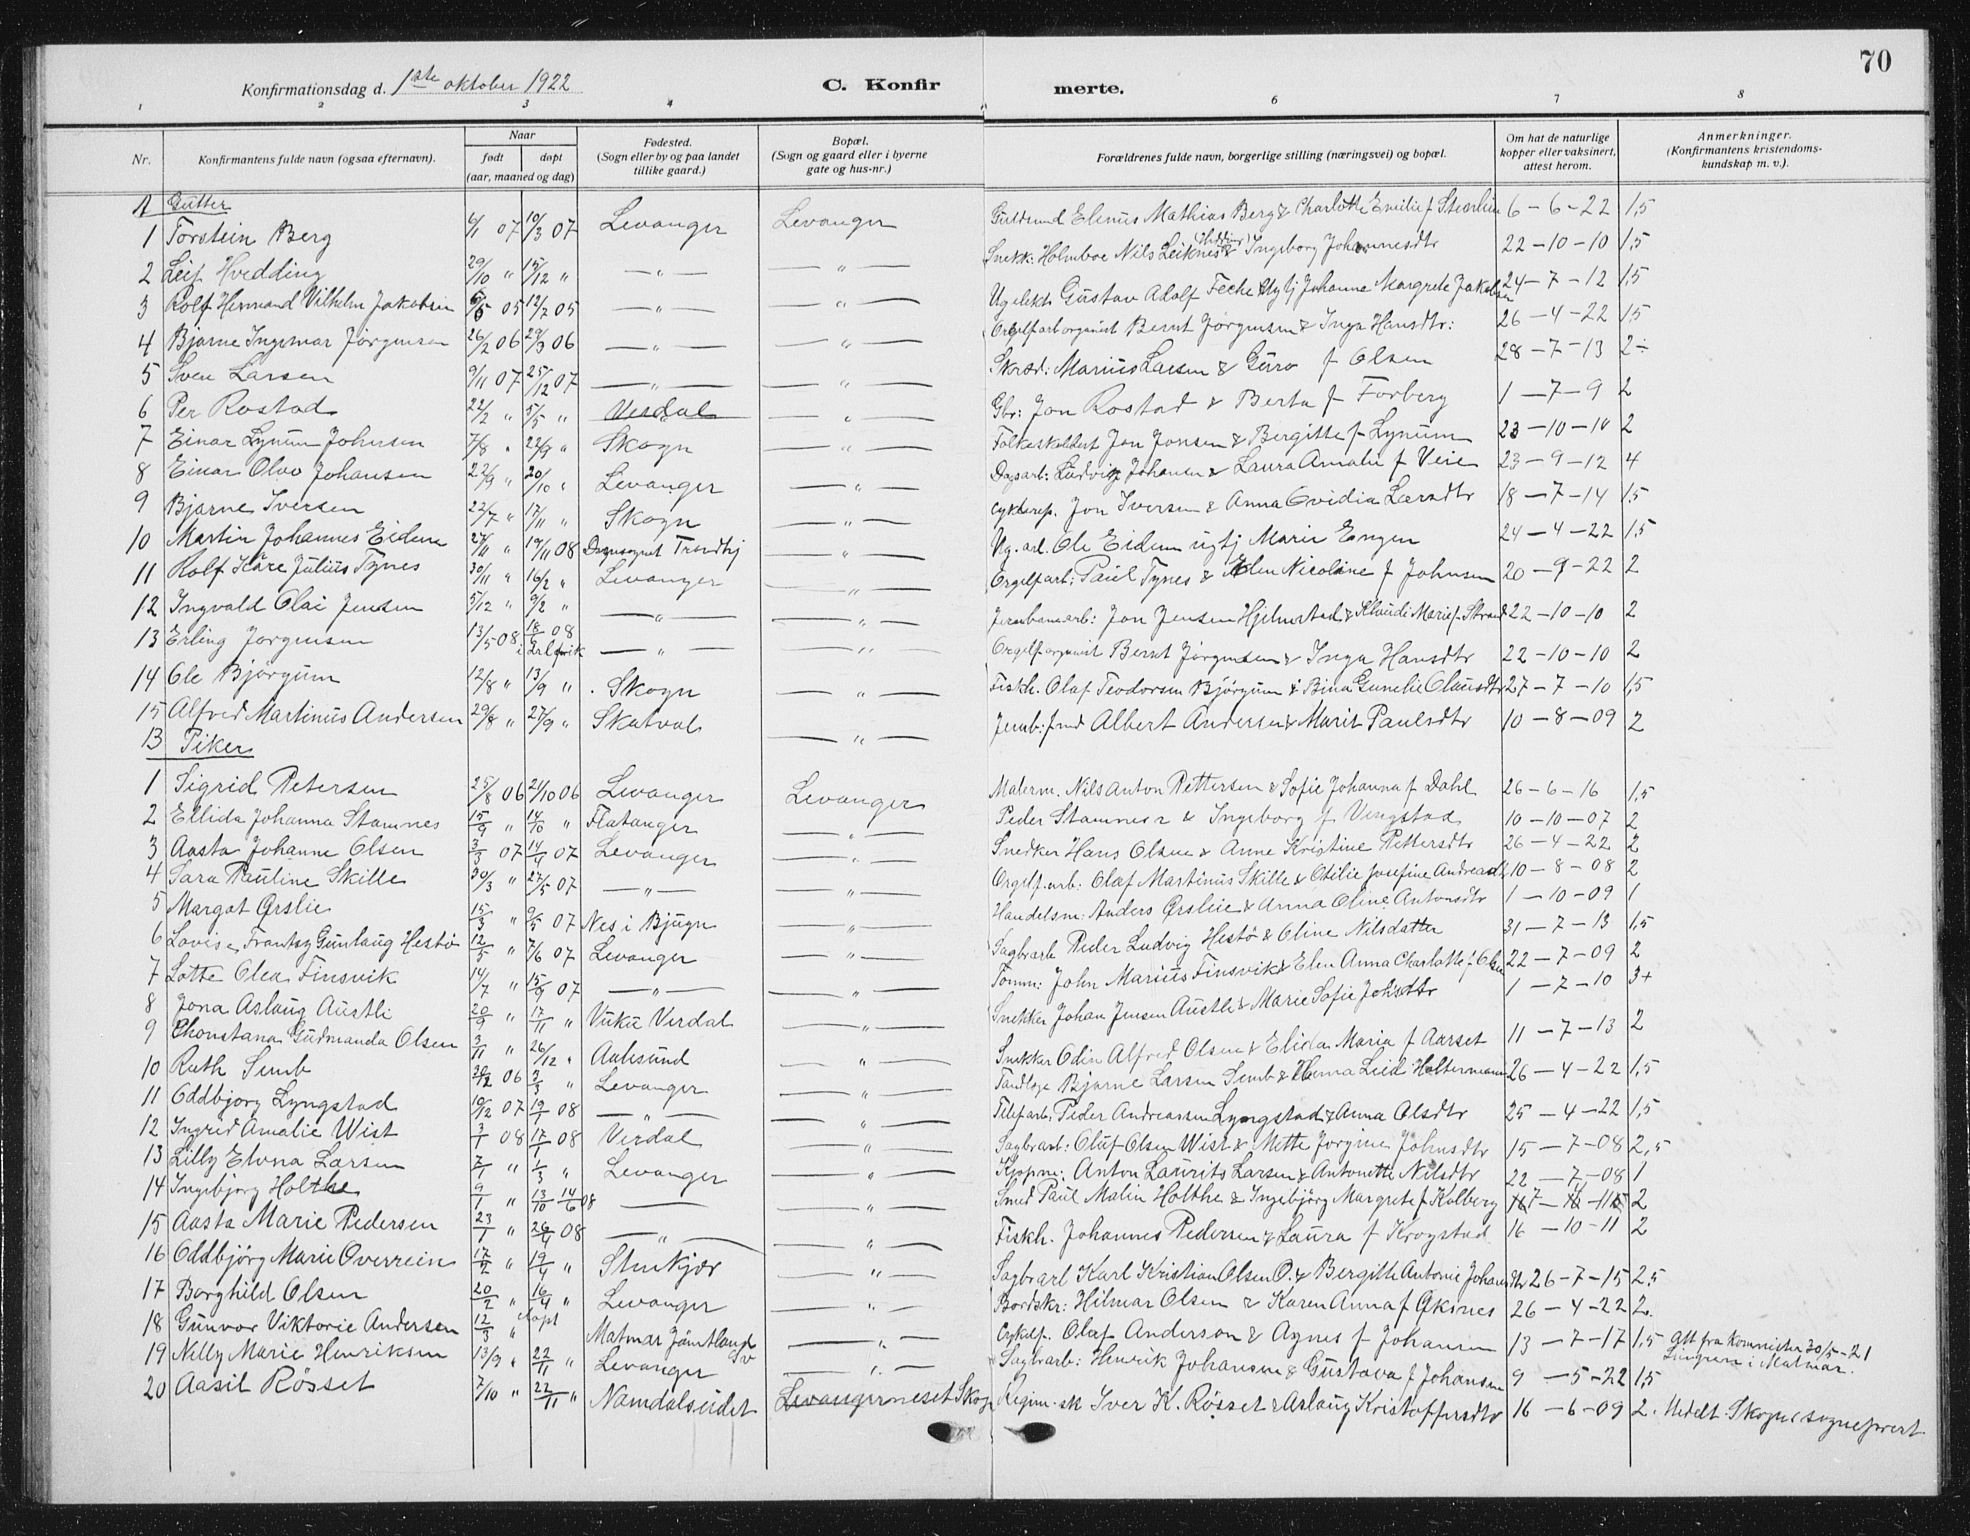 70
Konfirmationsdag d. 1ste oktober 1922 C. Konfirmerte.
1 2 3 4 6 7 8
Nr. Konfirmantens fulde navn (ogsaa efternavn). Naar født døpt (aar, maaned og dag) Fødested. (Sogn eller by og paa landet tillike gaard.) Bopæl. (Sogn og gaard eller i byerne gate og hus-nr.) Forældrenes fulde navn, borgerlige stilling (næringsvei) og bopæl. Om hat de naturlige kopper eller vaksinert, attest herom. Anmerkninger. (Konfirmantens kristendomskundskap m. v.).
A Gutter
1 Torstein Berg 4/1 07 10/3 07 Levanger Levanger Guldsmed Elenus Mathias Berg & Charlotte Emilie f. 6-6-22 1,5
2 Leif Hvedding 29/10 " 15/12 " —"— —"— Snekk: Holmboe Nils Leiknes & Ingeborg Johannesdtr 22-10-10 1,5
3 Rolf Hermand Vilhelm Jakobsen 05 12/2 05 —"— —"— Ug elekt Gustav Adolf & Ug tj Johanne Margrete Jakobsen 24-7-12 1,5
4 Bjarne Ingemar Jørgensen 26/2 06 29/3 06 —"— —"— Orgelfarb organist Bernt Jørgensen & Inga Hansdtr: 26-4-22 1,5
5 Sven Larsen 9/11 07 25/12 07 —"— —"— Skræd: Marius Larsen & Guro f Olsen 28-7-13 2÷
6 Per Rostad 22/2 " 5/5 " Verdal —"— Gbr: Jon Rostad & Berta f Forberg 1-7-9 2
7 Einar Lynum Johnsen 7/8 " 22/9 " Skogn —"— Jon Jonsen & Bergitte f Lynum 23-10-10 2
8 Einar Olav Johansen 22/9 " 20/10 " Levanger —"— Dagsarb: Ludvig Johansen & Laura Amalie f Veie 23-9-12 4
9 Bjarne Iversen 22/7 " 17/11 " Skogn —"— Cykkelrep. Jon Iversen & Anna Ovidia Larsdtr 18-7-14 1,5
10 Martin Johannes Eidem 24/11 " 19/11 08 Trondhj —"— Ug. arb. Ole Eidem ug tj Marie Engen 24-4-22 1,5
11 Rolf Kåre Julius Tynes 30/11 " 16/2 " Levanger —"— Orgelfarb: Paul Tynes & Elen Nicoline f Johnsen 20-9-22 2
12 Ingvald Olai Jensen 5/12 " 9/2 " —"— —"— Jernbanearb: Jon Jensen Hjelmstad & Klaudi Marie f. Strand 22-10-10 2
13 Erling Jørgensen 13/5 08 18/6 08 —"— —"— Orgelf organist Bernt Jørgensen & Inga Hansdtr 22-10-10 2
14 Ole Bjørgum 12/8 " 13/9 " Skogn —"— Fiskh. Olaf Teodorsen Bjørgum & Bina Gunelie Olausdtr 27-7-10 1,5
15 Alfred Martinus Andersen 29/8 " 27/9 " Skatval —"— Jernb: fmd Albert Andersen & Marit Paulsdtr 10-8-09 2
B Piker
1 Sigrid Petersen 25/8 06 24/10 06 Levanger Levanger Malerm. Nils Anton Pettersen & Sofie Johanna f Dahl 26-6-16 1,5
2 Ellida Johanna Stamnes 15/9 " 14/10 " Flatanger —"— Peder Stamnes & Ingeborg f Vengstad 10-10-07 2
3 Aasta Johanne Olsen 3/3 07 14/4 07 Levanger —"— Snedker Hans Olsen & Anne Kristine Pettersdtr 26-4-22 2
4 Sara Pauline Skille 30/3 " 27/5 07 —"— —"— Orgelf.arb: Olaf Martinus Skille & Otilie Josefine Andreasdtr 10-8-08 2
5 Margot Ørslie 15/3 " 9/5 07 Nes i Bjugn —"— Handelsm: Anders Ørslie & Anna Oline Antonsdtr 1-10-09 1
6 Lovise Frantzy Gunlaug Hestø 12/5 " 7/6 07 Levanger —"— Sagbrarb Peder Ludvig Hestø & Oline Nilsdatter 31-7-13 1,5
7 Lotte Olea Finsvik 14/7 " 15/9 07 —"— —"— Tomm: John Marius Finsvik & Elen Anna Charlotte f Olsen 22-7-09 2
8 Jona Aslaug Austli 20/9 " 17/11 " Vuku Verdal —"— Snekker Johan Jensen Austli & Marie Sofie Johsdtr 1-7-10 3+
9 Chonstana Gudmanda Olsen 3/11 " 26/12 " Aalesund —"— Snekker Odin Alfred Olsen & Elida Maria f Aarset 11-7-13 2
10 Ruth Semb 20/12 06 3/3 " Levanger —"— Tandlæge Bjarne Larsen Semb & Leid Holtermann 26-4-22 1,5
11 Oddbjørg Lyngstad 10/12 07 19/1 08 —"— —"— Telefarb: Peder Andreassen Lyngstad & Anna Olsdtr 25-4-22 1,5
12 Ingrid Amalie Wist 3/1 08 17/1 08 Verdal —"— Sagbrarb: Oluf Olsen Wist & Mette Jorgine Johnsdtr 15-7-08 2,5
13 Lilly Elvna Larsen 7/1 " 1/3 " Levanger —"— Kjøpm: Anton Laurits Larsen & Antonette Nilsdtr 22-7-08 1
14 Ingebjørg Holthe 9/1 " 13/10 14/6 08 —— —"— Smed Paul Malin Holthe & Ingebjørg Margrete f Kolberg 2
15 Aasta Marie Pedersen 23/1 " 26/4 08 —"— —"— Fiskh. Johannes Pedersen & Laura f Krogstad 16-10-11 2
16 Oddbjørg Marie Overrein 17/2 " 19/4 " Stenkjær —"— Sagbrarb Karl Kristian Olsen O. & Bergitte Antonie Johansdtr 26-7-15 2,5
17 Borghild Olsen 20/2 " 16/4 " Levanger —"— Bordskr: Hilmar Olsen & Karen Anna f Øksnes 26-4-22 2.
18 Gunvor Viktorie Andersen 12/3 " døpt Matmar Jämtland Sv —"— Cykelf. Olaf Anderson & Agnes f Johansen 13-7-17 1,5 att fra Komminister 30/5-21 i Matmar.
19 Nelly Marie Henriksen 13/9 " 22/11 " Levanger —"— Sagbrarb: Henrik Johansen & Gustava f Johansen 9-5-22 1,5
20 Aasil Røsset 7/10 " 22/11 " Namdalseidet Levangerneset Skogn Regim.sk Iver K. Røsset & Aslaug Kristoffersdtr 16-6-09 2. Medelt Skogns sogneprest.